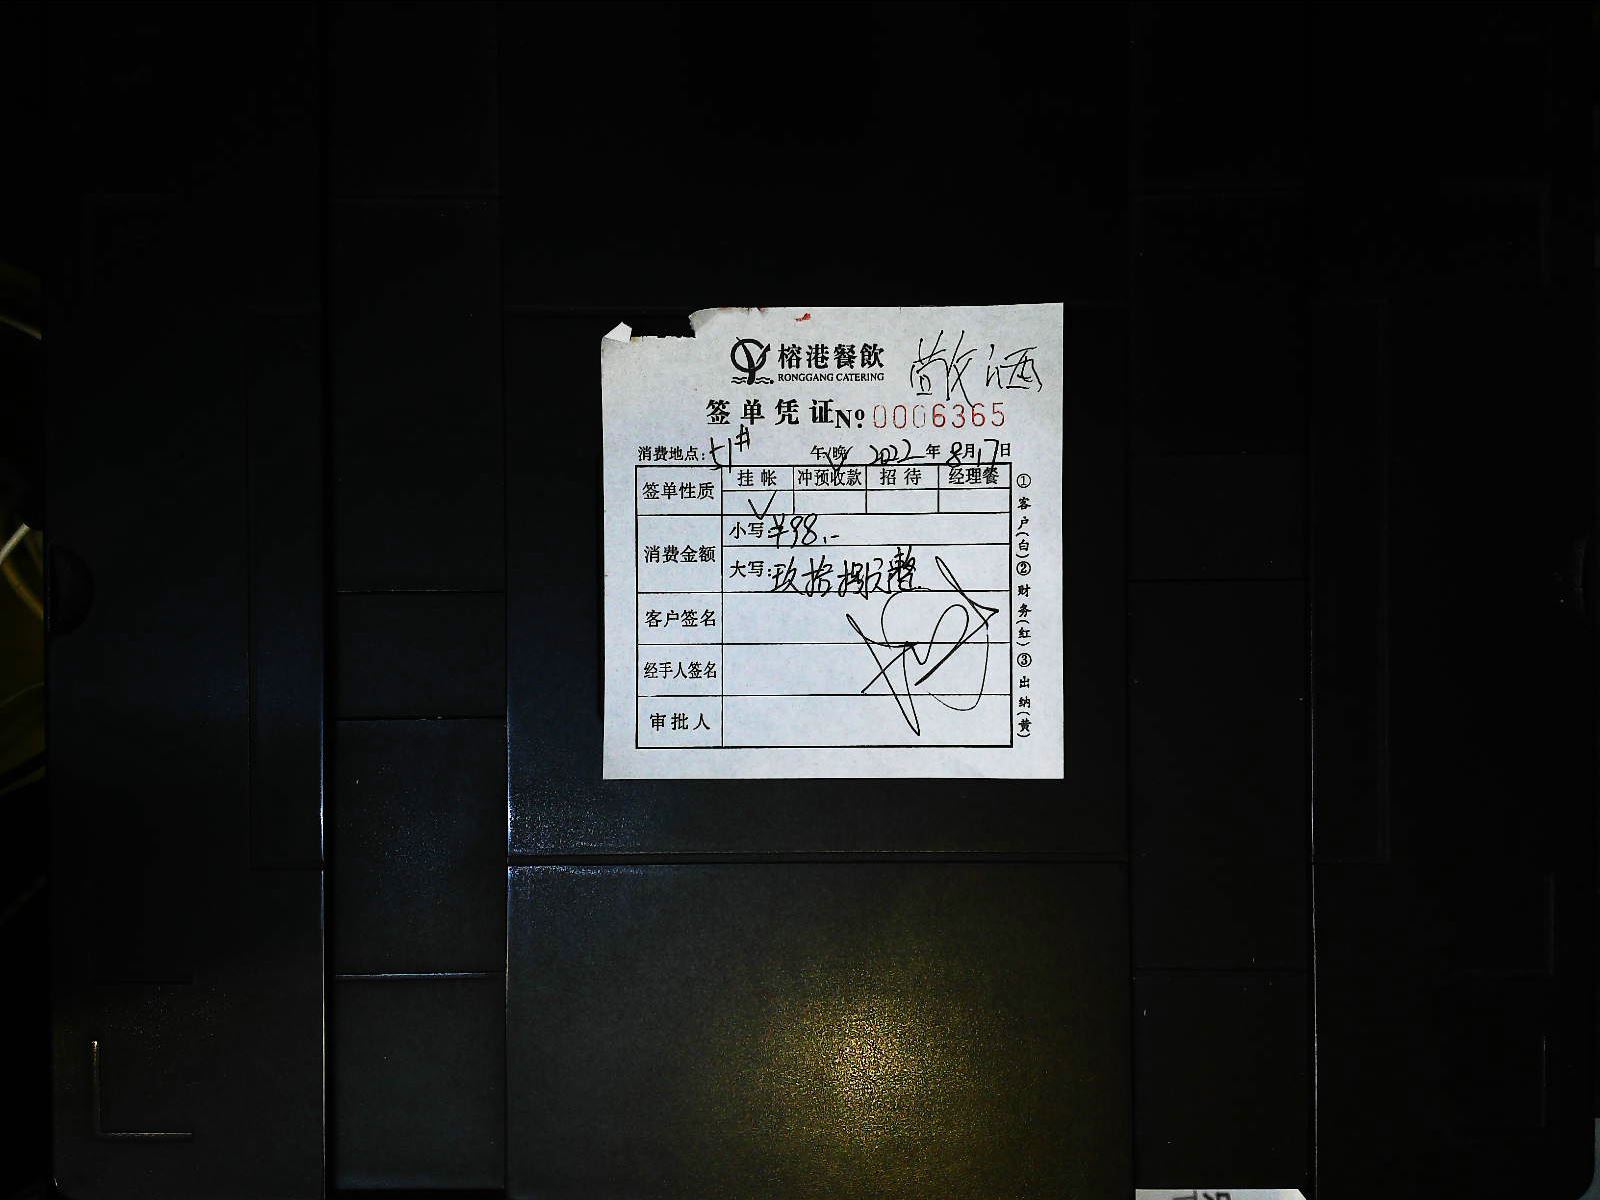 榕港餐飲
RONGGANG CATERING
签单凭证 № 0006365
消费地点: 51# 午/晚 2022年8月17日
签单性质 挂帐 冲预收款 招待 经理餐
消费金额 小写: ¥98.-
大写: 玖拾捌元整
客户签名
经手人签名
审批人
①客户(白)②财务(红)③出纳(黄)